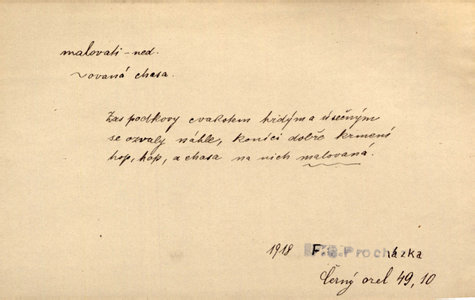 malovati – ned.
~ovaná chasa.
Zas podkovy cvakotem hrdým a úsečným
se ozvaly náhle, koníci dobře krmení
hop, hop, a chasa na nich malovaná.
1918 F. S. Procházka
Černý orel 49, 10